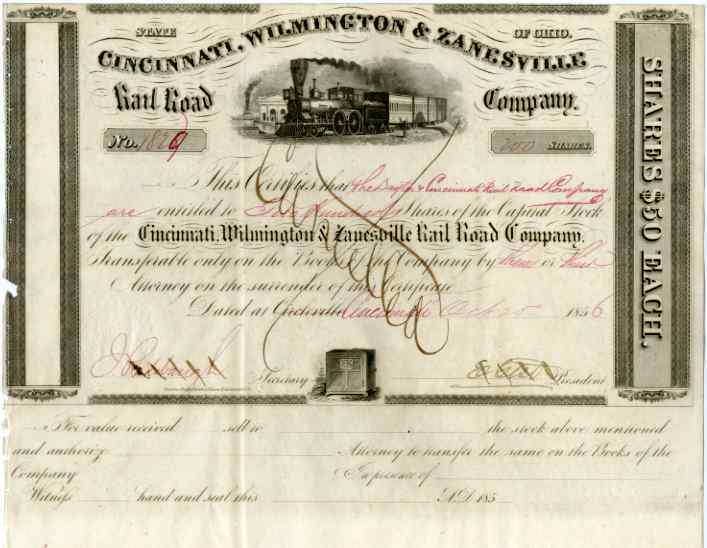 STATE OF OHIO.
CINCINNATI, WILMINGTON & ZANESVILLE
Rail Road Company.
No. 1829 200 SHARES.
This Certifies that the Dayton & Cincinnati Rail Road Company
are entitled to Two Hundred Shares of the Capital Stock
of the Cincinnati, Wilmington & Zanesville Rail Road Company.
Transferable only on the Books of the Company by them or their
Attorney on the surrender of this Certificate
Dated at Circleville Cincinnati Oct 1856
Secretary President
SHARES $50 EACH.
For value received sell to the stock above mentioned
and authorize Attorney to transfer the same on the Books of the
Company In presence of
Witness hand and seal this A.D. 185